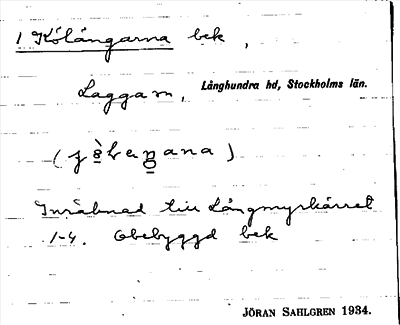 1 Kölängarna bek,
Laggarn, Långhundra hd, Stockholms län.
Inräknad till Långmyrkärret
1-4. Obebyggd bek
JÖRAN SAHLGREN 1934.